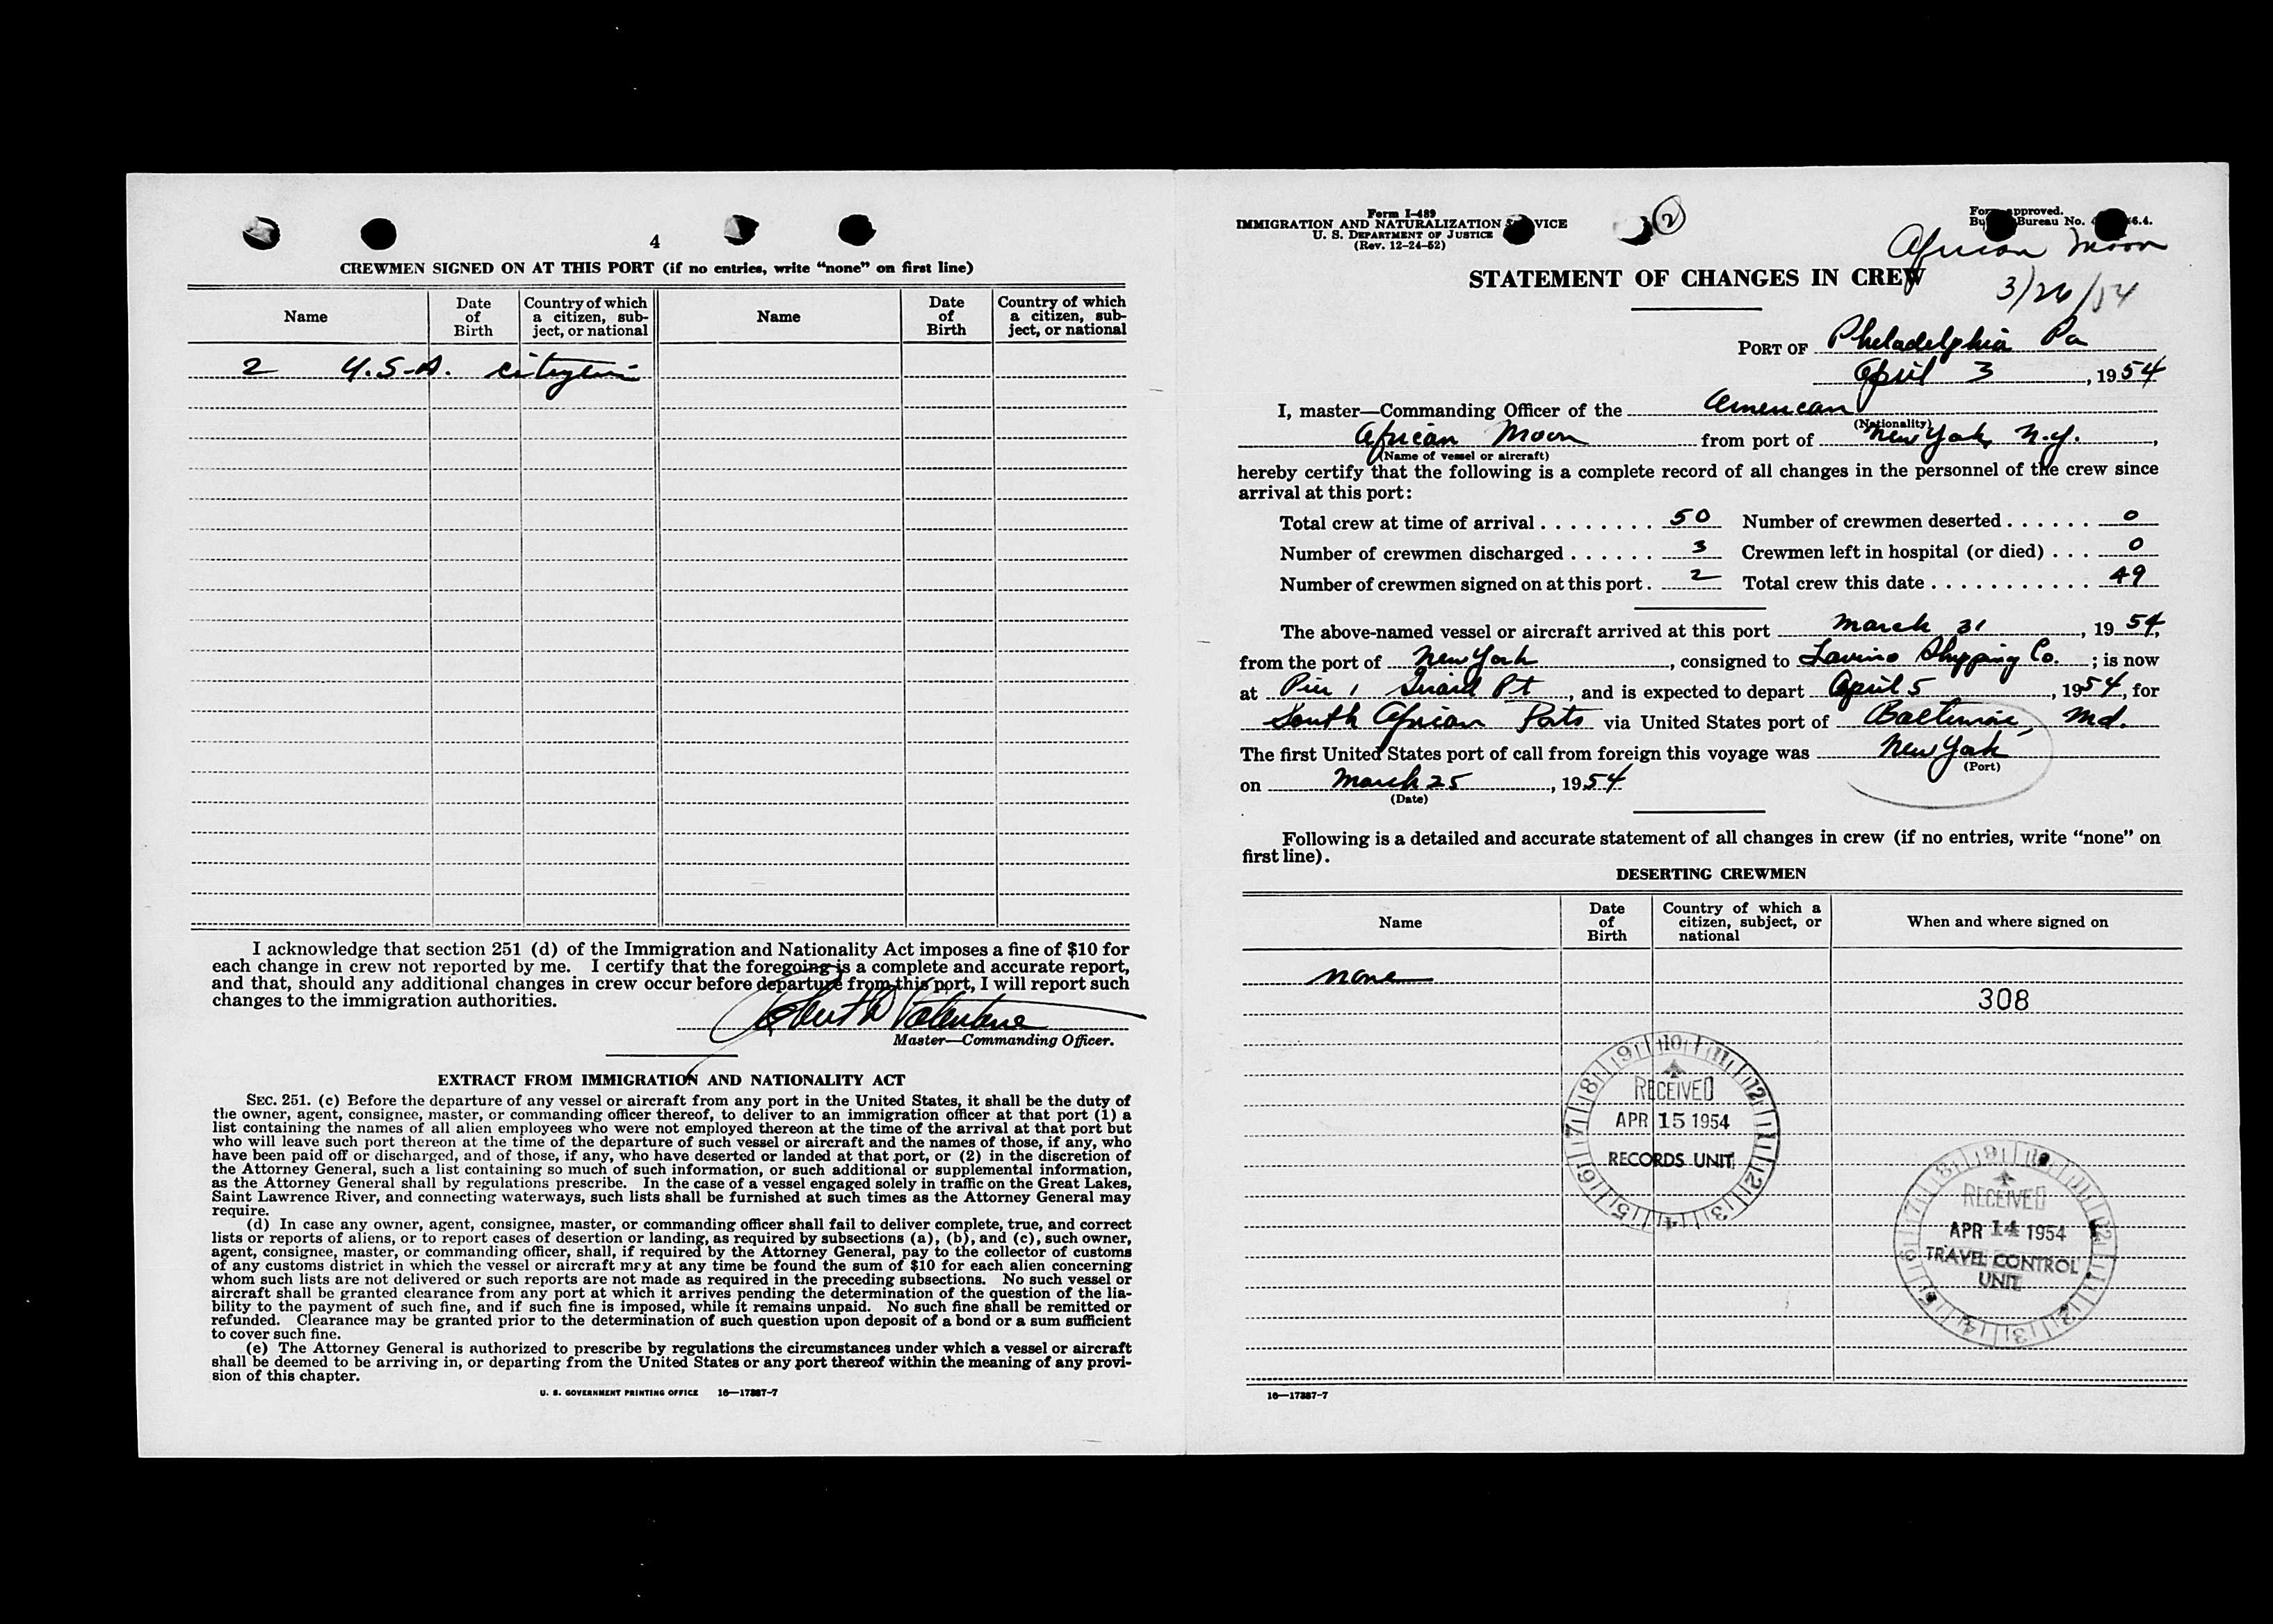 4
CREWMEN SIGNED ON AT THIS PORT (if no entries, write “none” on first line)
Name Date of Birth Country of which a citizen, subject, or national Name Date of Birth Country of which a citizen, subject, or national
2 U.S.A. citizens
I acknowledge that section 251 (d) of the Immigration and Nationality Act imposes a fine of $10 for
each change in crew not reported by me. I certify that the foregoing is a complete and accurate report,
and that, should any additional changes in crew occur before departure from this port, I will report such
changes to the immigration authorities.
Valentine
Master—Commanding Officer.
EXTRACT FROM IMMIGRATION AND NATIONALITY ACT
SEC. 251. (c) Before the departure of any vessel or aircraft from any port in the United States, it shall be the duty of
the owner, agent, consignee, master, or commanding officer thereof, to deliver to an immigration officer at that port (1) a
list containing the names of all alien employees who were not employed thereon at the time of the arrival at that port but
who will leave such port thereon at the time of the departure of such vessel or aircraft and the names of those, if any, who
have been paid off or discharged, and of those, if any, who have deserted or landed at that port, or (2) in the discretion of
the Attorney General, such a list containing so much of such information, or such additional or supplemental information,
as the Attorney General shall by regulations prescribe. In the case of a vessel engaged solely in traffic on the Great Lakes,
Saint Lawrence River, and connecting waterways, such lists shall be furnished at such times as the Attorney General may
require.
(d) In case any owner, agent, consignee, master, or commanding officer shall fail to deliver complete, true, and correct
lists or reports of aliens, or to report cases of desertion or landing, as required by subsections (a), (b), and (c), such owner,
agent, consignee, master, or commanding officer, shall, if required by the Attorney General, pay to the collector of customs
of any customs district in which the vessel or aircraft may at any time be found the sum of $10 for each alien concerning
whom such lists are not delivered or such reports are not made as required in the preceding subsections. No such vessel or
aircraft shall be granted clearance from any port at which it arrives pending the determination of the question of the lia-
bility to the payment of such fine, and if such fine is imposed, while it remains unpaid. No such fine shall be remitted or
refunded. Clearance may be granted prior to the determination of such question upon deposit of a bond or a sum sufficient
to cover such fine.
(e) The Attorney General is authorized to prescribe by regulations the circumstances under which a vessel or aircraft
shall be deemed to be arriving in, or departing from the United States or any port thereof within the meaning of any provi-
sion of this chapter.
U. S. GOVERNMENT PRINTING OFFICE 16—17387-7
Form I-489
IMMIGRATION AND NATURALIZATION SERVICE
U. S. DEPARTMENT OF JUSTICE
(Rev. 12-24-52)
2
Form approved.
Bureau No. 6.4.
African Moon
3/26/54
STATEMENT OF CHANGES IN CREW
PORT OF Philadelphia Pa
April 3, 1954
I, master—Commanding Officer of the American
(Nationality)
African Moon from port of New York, N.Y.,
(Name of vessel or aircraft)
hereby certify that the following is a complete record of all changes in the personnel of the crew since
arrival at this port:
Total crew at time of arrival . . . . . . . . 50 Number of crewmen deserted . . . . . . 0
Number of crewmen discharged . . . . . . 3 Crewmen left in hospital (or died) . . . 0
Number of crewmen signed on at this port . 2 Total crew this date . . . . . . . . . . . 49
The above-named vessel or aircraft arrived at this port March 31, 1954,
from the port of New York, consigned to Lavino Shipping Co.; is now
at Pier 1 Girard Pt, and is expected to depart April 5, 1954, for
South African Ports via United States port of Baltimore, Md.
The first United States port of call from foreign this voyage was New York
(Port)
on March 25, 1954
(Date)
Following is a detailed and accurate statement of all changes in crew (if no entries, write “none” on
first line).
DESERTING CREWMEN
Name Date of Birth Country of which a citizen, subject, or national When and where signed on
none
308
RECEIVED
APR 15 1954
RECORDS UNIT
RECEIVED
APR 14 1954
TRAVEL CONTROL
UNIT
16—17387-7